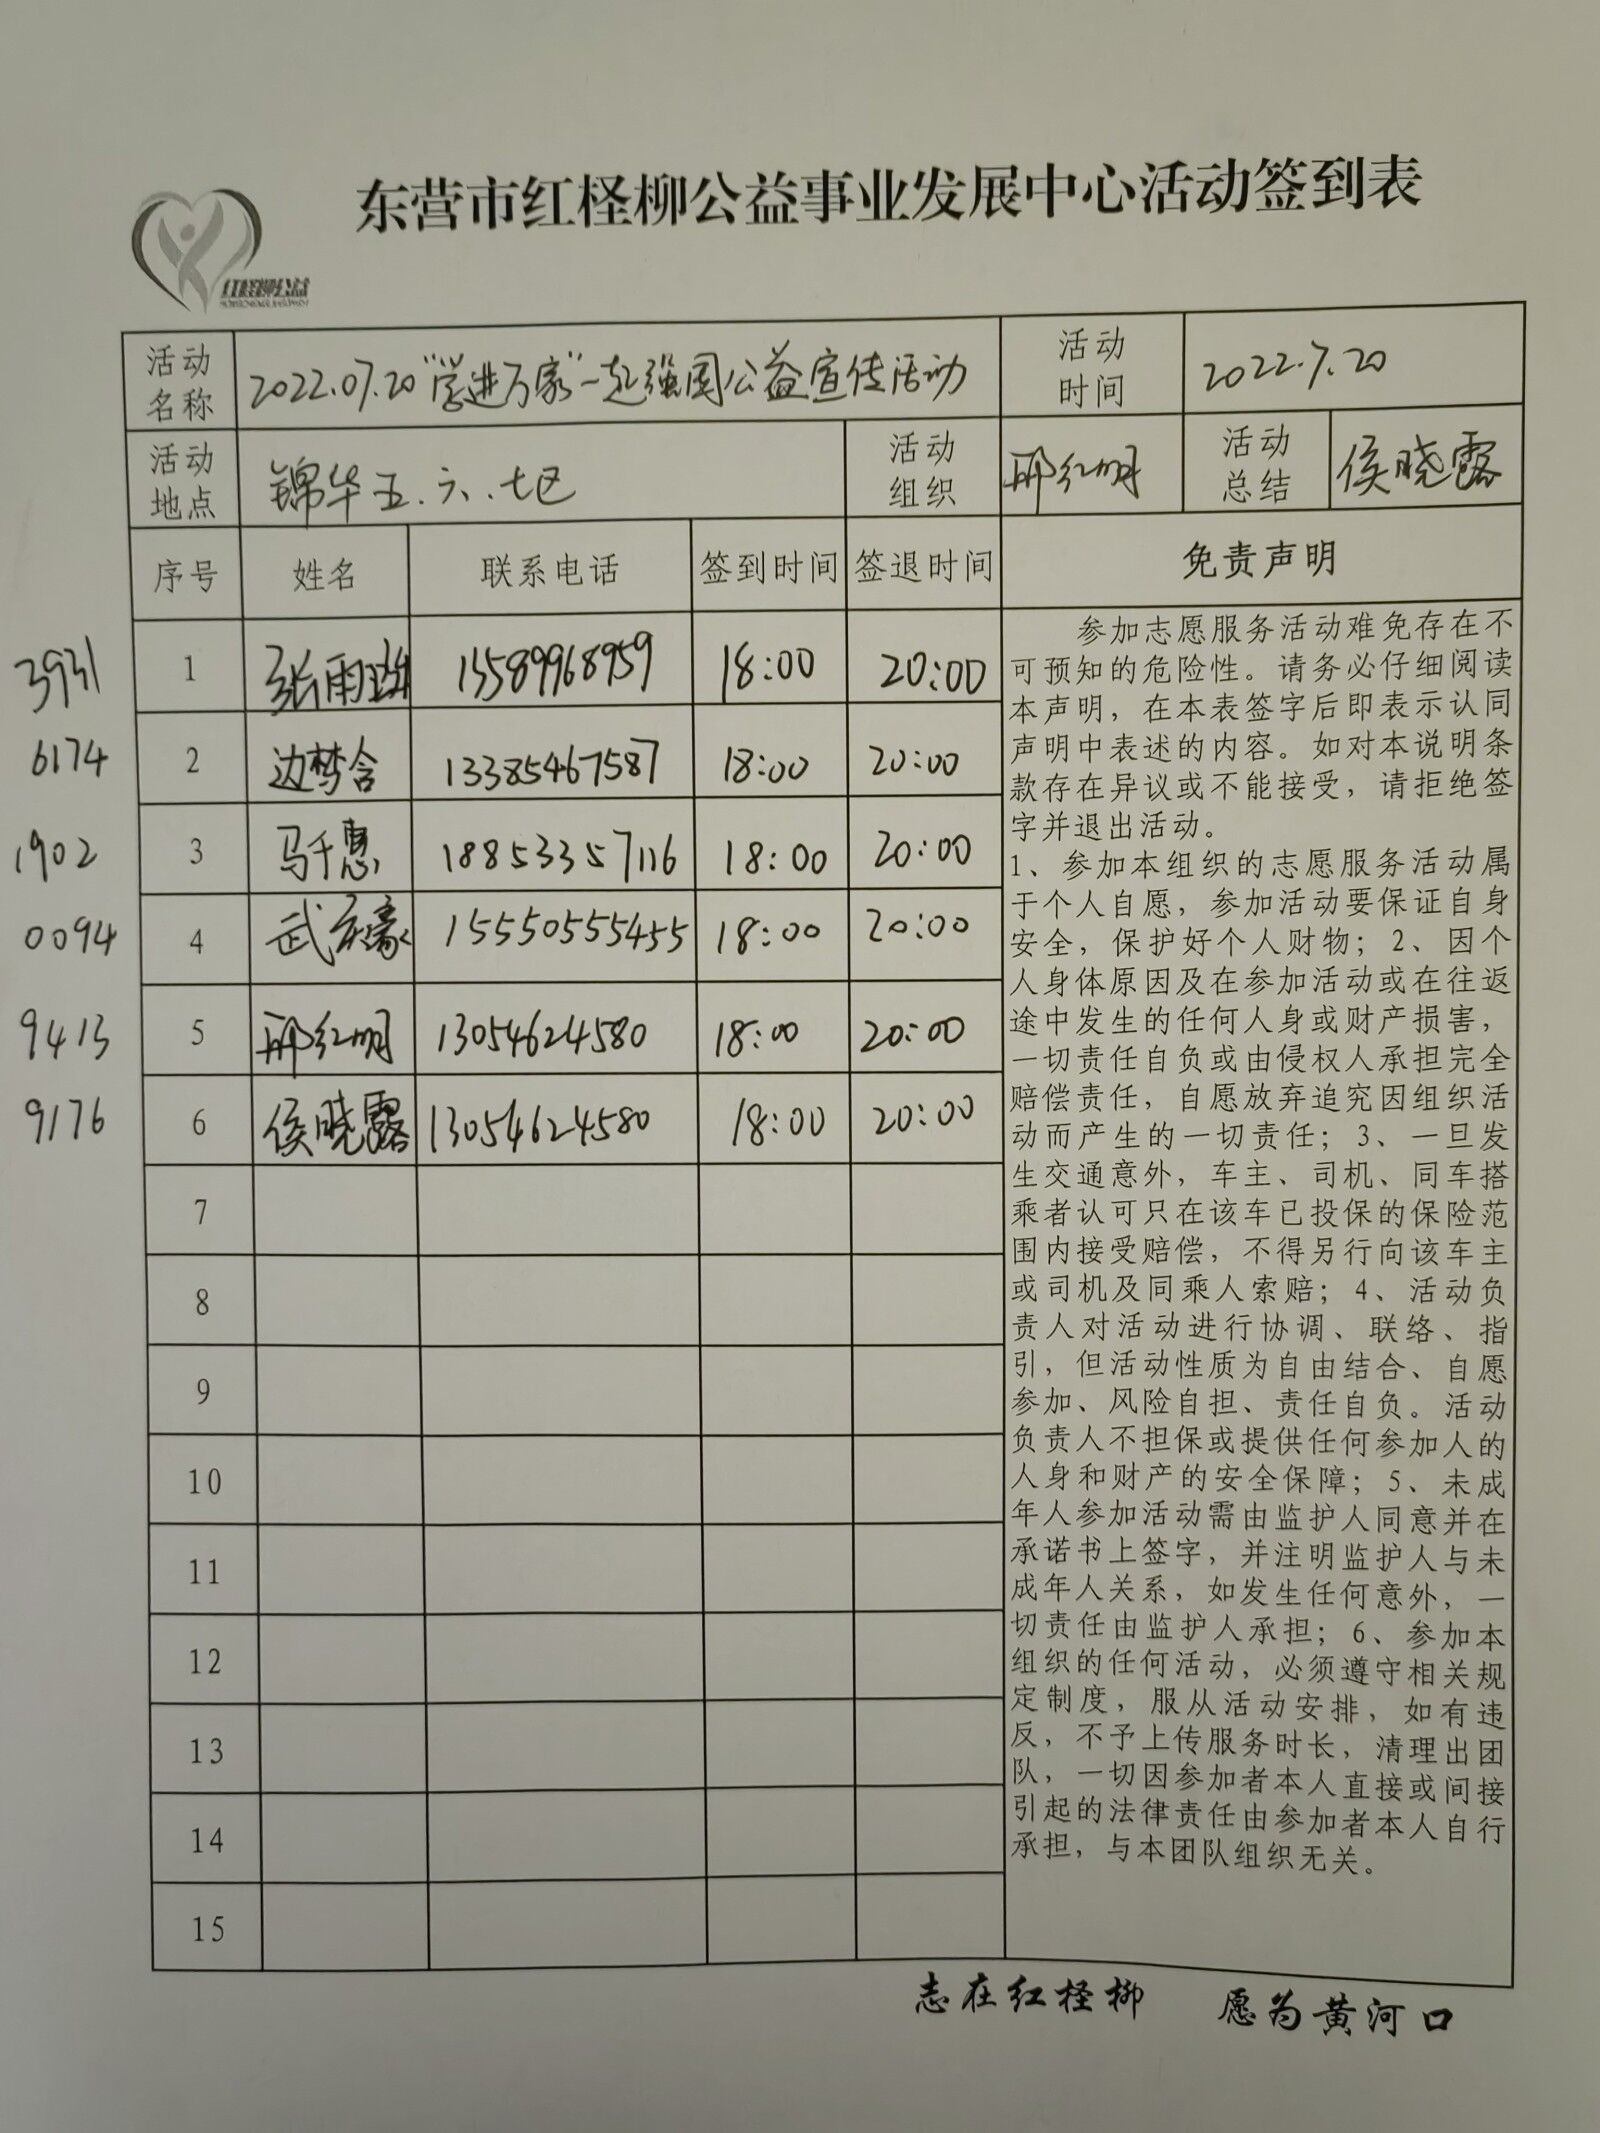 东营市红柽柳公益事业发展中心活动签到表
红柽柳公益
活动名称 2022.07.20“学进万家”一起强国公益宣传活动 活动时间 2022.7.20
活动地点 锦华五.六.七区 活动组织 邢红明 活动总结 侯晓露
序号 姓名 联系电话 签到时间 签退时间 免责声明
3931 1 张雨 15589968959 18:00 20:00
6174 2 边梦含 13385467587 18:00 20:00
1902 3 马千惠 18853357116 18:00 20:00
0094 4 武庆豪 15550555455 18:00 20:00
9413 5 邢红明 13054624580 18:00 20:00
9176 6 侯晓露 13054624580 18:00 20:00
7
8
9
10
11
12
13
14
15
参加志愿服务活动难免存在不
可预知的危险性。请务必仔细阅读
本声明，在本表签字后即表示认同
声明中表述的内容。如对本说明条
款存在异议或不能接受，请拒绝签
字并退出活动。
1、参加本组织的志愿服务活动属
于个人自愿，参加活动要保证自身
安全，保护好个人财物；2、因个
人身体原因及在参加活动或在往返
途中发生的任何人身或财产损害，
一切责任自负或由侵权人承担完全
赔偿责任，自愿放弃追究因组织活
动而产生的一切责任；3、一旦发
生交通意外，车主、司机、同车搭
乘者认可只在该车已投保的保险范
围内接受赔偿，不得另行向该车主
或司机及同乘人索赔；4、活动负
责人对活动进行协调、联络、指
引，但活动性质为自由结合、自愿
参加、风险自担、责任自负。活动
负责人不担保或提供任何参加人的
人身和财产的安全保障；5、未成
年人参加活动需由监护人同意并在
承诺书上签字，并注明监护人与未
成年人关系，如发生任何意外，一
切责任由监护人承担；6、参加本
组织的任何活动，必须遵守相关规
定制度，服从活动安排，如有违
反，不予上传服务时长，清理出团
队，一切因参加者本人直接或间接
引起的法律责任由参加者本人自行
承担，与本团队组织无关。
志在红柽柳 愿为黄河口